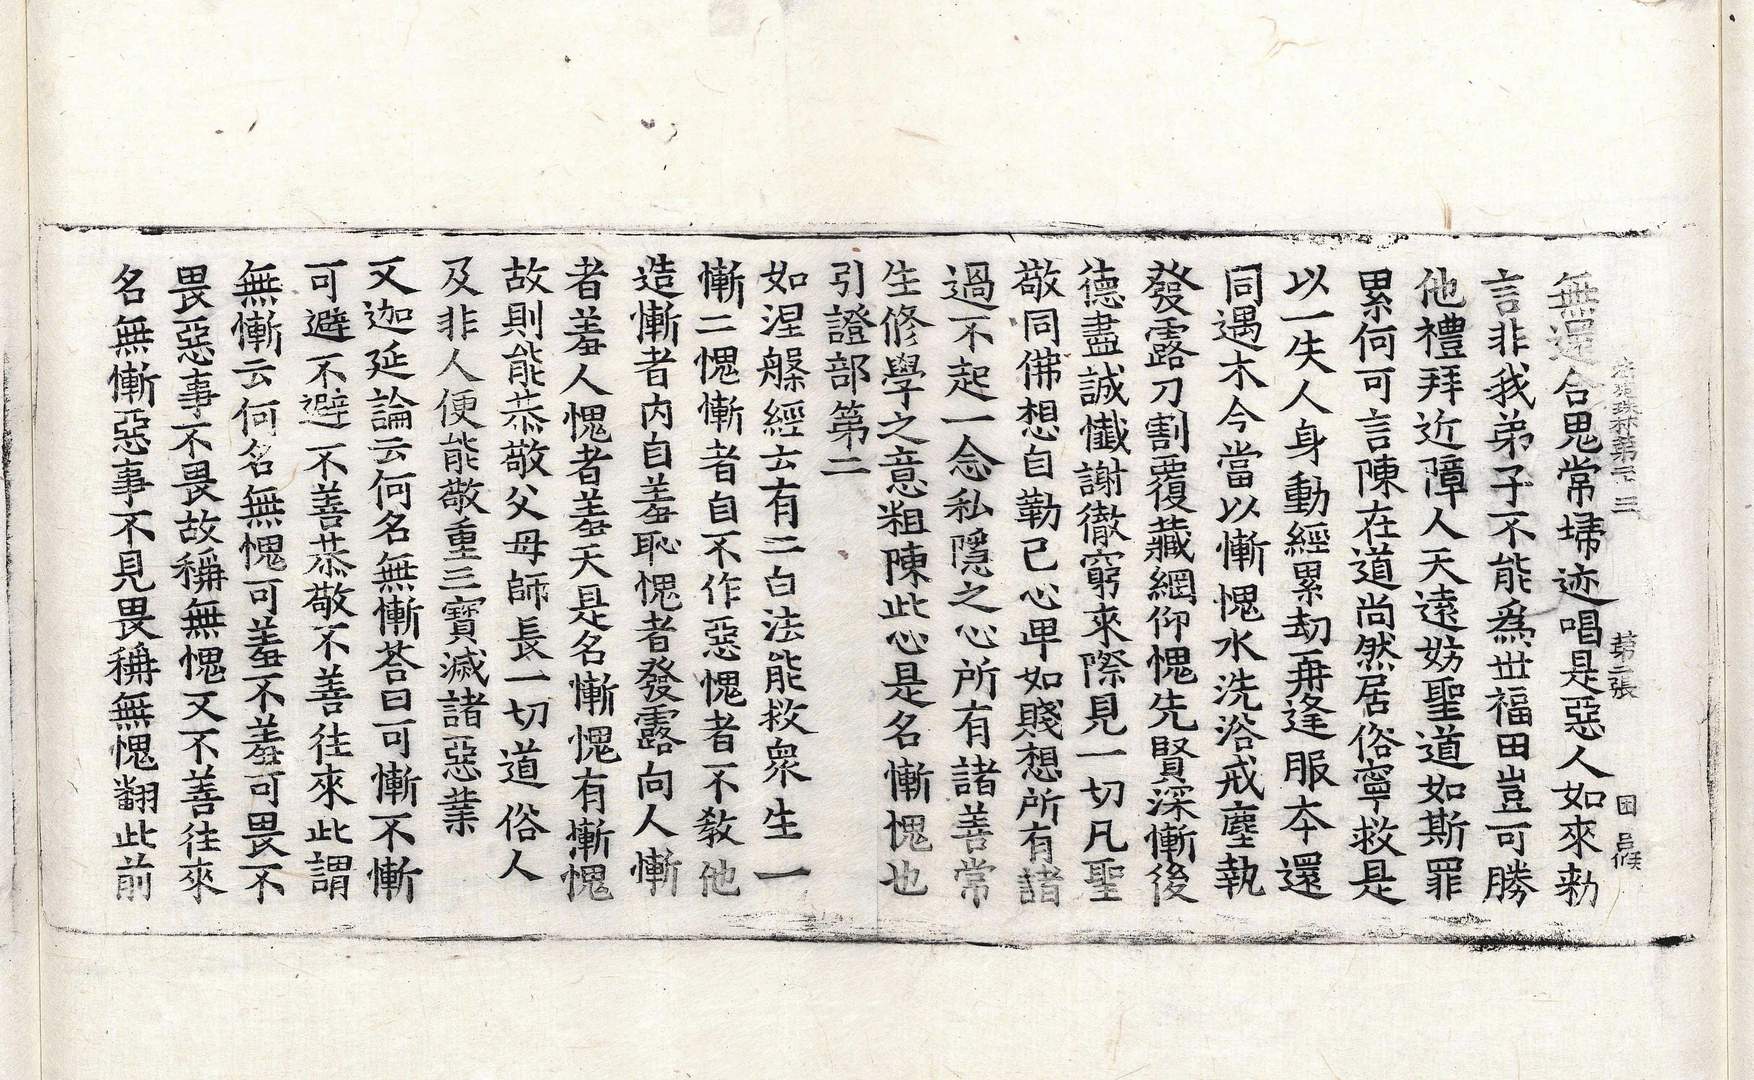 法苑珠林第二十三 第二張 困 㠯候
無還合思常埽迹唱是惡人如來勑
言非我弟子不能爲世福田豈可勝
他禮拜近障人天遠妨聖道如斯罪
累何可言陳在道尚然居俗寧救是
以一失人身動經累劫再逢服本還
同遇木今當以慚愧水洗浴戒塵執
發露刀割覆藏網仰愧先賢深慚後
德盡誠懺謝徹窮來際見一切凡聖
敬同佛想自勤己心卑如賤想所有諸
過不起一念私隱之心所有諸善常
生修學之意粗陳此心是名慚愧也
引證部第二
如涅槃經云有二白法能救衆生一
慚二愧慚者自不作惡愧者不教他
造慚者內自羞恥愧者發露向人慚
者羞人愧者羞天是名慚愧有慚愧
故則能恭敬父母師長一切道俗人
及非人便能敬重三寶滅諸惡業
又迦延論云何名無慚荅曰可慚不慚
可避不避不善恭敬不善往來此謂
無慚云何名無愧可羞不羞可畏不
畏惡事不畏故稱無愧又不善往來
名無慚惡事不見畏稱無愧翻此前